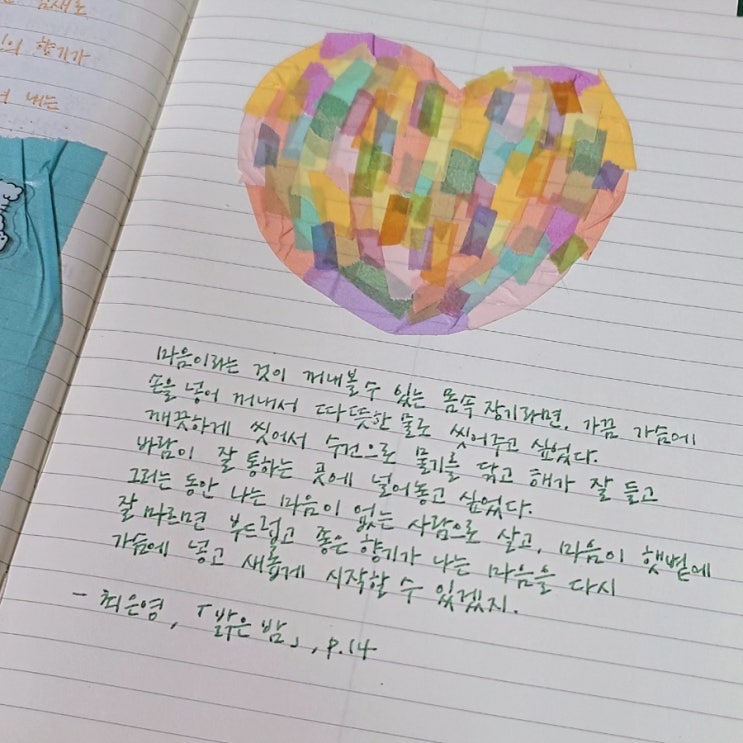 틈새로
의 향기가
내는
마음이라는 것이 꺼내볼 수 있는 몸속 장기라면, 가끔 가슴에
손을 넣어 꺼내서 따뜻한 물로 씻어주고 싶었다.
깨끗하게 씻어서 수건으로 물기를 닦고 해가 잘 들고
바람이 잘 통하는 곳에 널어놓고 싶었다.
그러는 동안 나는 마음이 없는 사람으로 살고, 마음이 햇볕에
잘 마르면 부드럽고 좋은 향기가 나는 마음을 다시
가슴에 넣고 새롭게 시작할 수 있겠지.
- 최은영, 「밝은 밤」, p.14